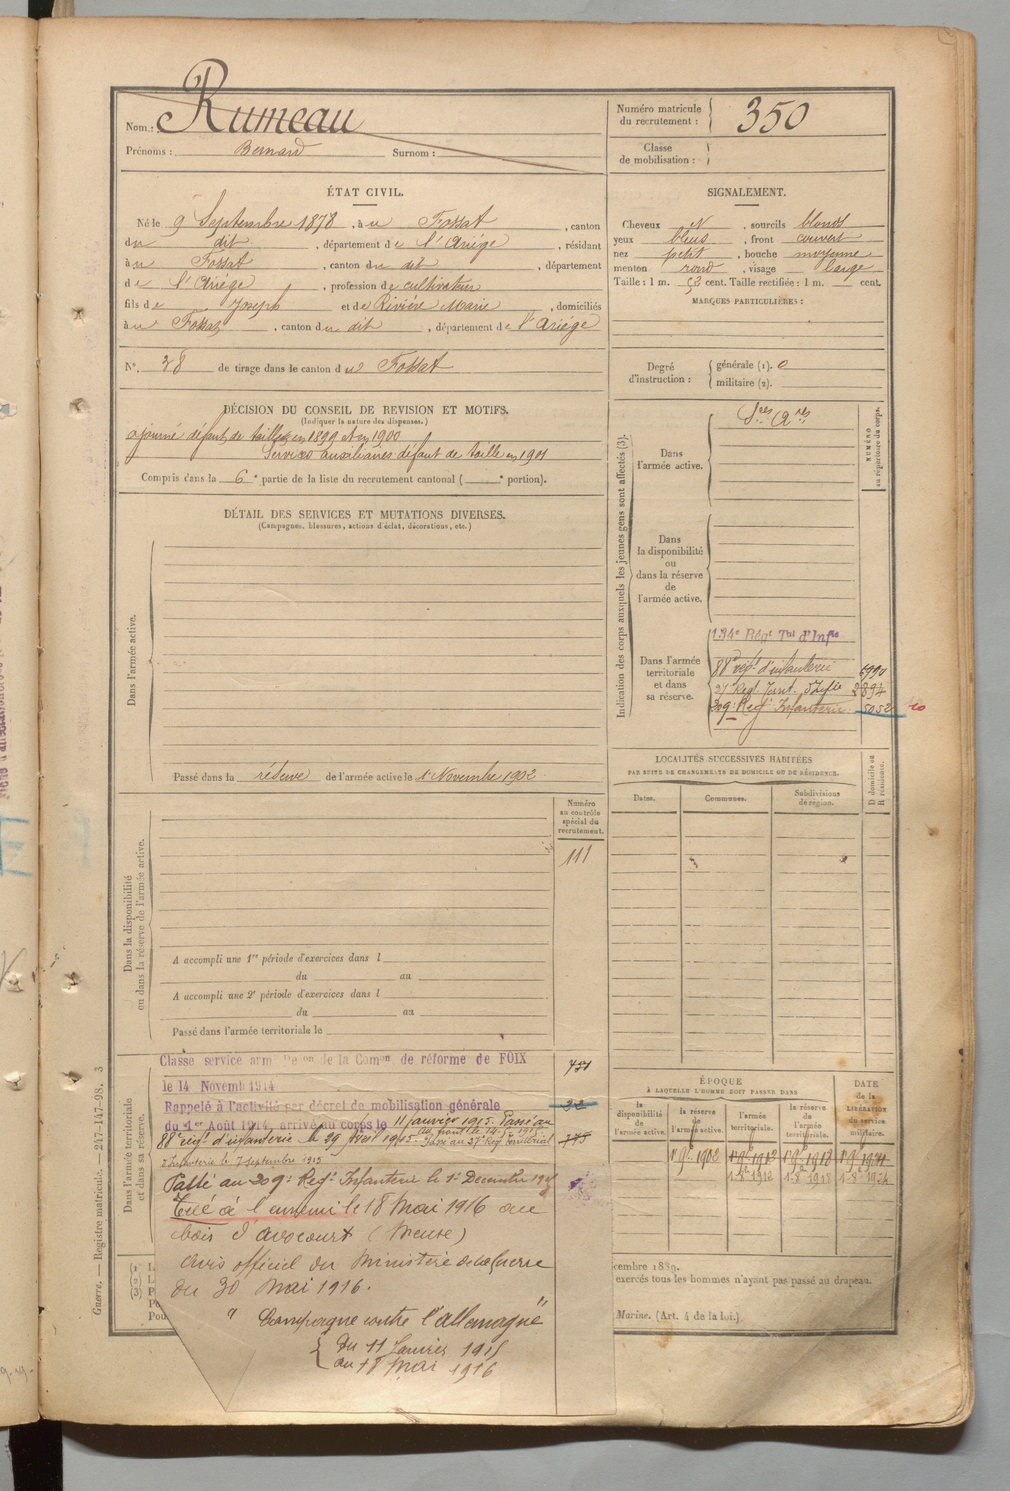 Nom : Rumeau
Prénoms : Bernard Surnom :
Numéro matricule du recrutement : 350
Classe de mobilisation :
ÉTAT CIVIL.
Né le 9 Septembre 1878, à u Fossat, canton
du dit, département de l'Ariège, résidant
à u Fossat, canton du dit, département
de l'Ariège, profession de cultivateur
fils de Joseph et de Rivière Marie, domiciliés
à u Fossat, canton du dit, département de l'Ariège
N° 28 de tirage dans le canton du Fossat
SIGNALEMENT.
Cheveux et, sourcils blonds
yeux bleus, front couvert
nez petit, bouche moyenne
menton rond, visage large
Taille : 1 m. 53 cent. Taille rectifiée : 1 m. cent.
MARQUES PARTICULIÈRES :
Degré d'instruction : générale (1). 0
militaire (2).
DÉCISION DU CONSEIL DE REVISION ET MOTIFS.
(Indiquer la nature des dispenses.)
ajourné défaut de taille en 1899 et en 1900
Services auxiliaires défaut de taille en 1901
Compris dans la 6e partie de la liste du recrutement cantonal ( e portion).
DÉTAIL DES SERVICES ET MUTATIONS DIVERSES.
(Campagnes, blessures, actions d'éclat, décorations, etc.)
Dans l'armée active.
Passé dans la réserve de l'armée active le 1er Novembre 1902
Indication des corps auxquels les jeunes gens sont affectés (3).
NUMÉRO au répertoire du corps.
Dans l'armée active.
Sces Ares
Dans la disponibilité ou dans la réserve de l'armée active.
Dans l'armée territoriale et dans sa réserve.
134e Régt Tal d'Infie
88e régt d'infanterie 6990
27 Régt Tant. d'Infie 2894
209e Régt Infanterie 5052
LOCALITÉS SUCCESSIVES HABITÉES
PAR SUITE DE CHANGEMENTS DE DOMICILE OU DE RÉSIDENCE.
Dates. Communes. Subdivisions de région. D domicile ou R résidence.
Dans la disponibilité ou dans la réserve de l'armée active.
Numéro au contrôle spécial du recrutement.
111
A accompli une 1re période d'exercices dans l
du au
A accompli une 2e période d'exercices dans l
du au
Passé dans l'armée territoriale le
Dans l'armée territoriale et dans sa réserve.
Classé service armé de la Comon de réforme de FOIX
le 14 Novemb 1914
Rappelé à l'activité par décret de mobilisation générale
du 1er Août 1914, arrivé au corps le 11 janvier 1915. Passé au
88e régt d'infanterie le 29 avril 1915. Au front le 14-5-1915. Passé au 27e Régt Territorial
d'Infanterie le 7 septembre 1915
Passé au 209e Régt Infanterie le 1er Décembre 1915
Tué à l'ennemi le 18 Mai 1916 au
bois d'avocourt (Meuse)
Avis officiel du Ministère de la Guerre
du 30 Mai 1916.
"Campagne contre l'allemagne"
du 11 Janvier 1915
au 18 Mai 1916
ÉPOQUE
À LAQUELLE L'HOMME DOIT PASSER DANS
DATE de la LIBÉRATION du service militaire.
la disponibilité de l'armée active. la réserve de l'armée active. l'armée territoriale. la réserve de l'armée territoriale.
1er 9bre 1902 1er 9bre 1912 1er 9bre 1918 1er 9bre 1924
1-8bre 1912 1-8bre 1918 1-8bre 1924
cembre 1889.
exercés tous les hommes n'ayant pas passé au drapeau.
Marine. (Art. 4 de la loi.)
Guerre. — Registre matricule. — 247-147-98. 3